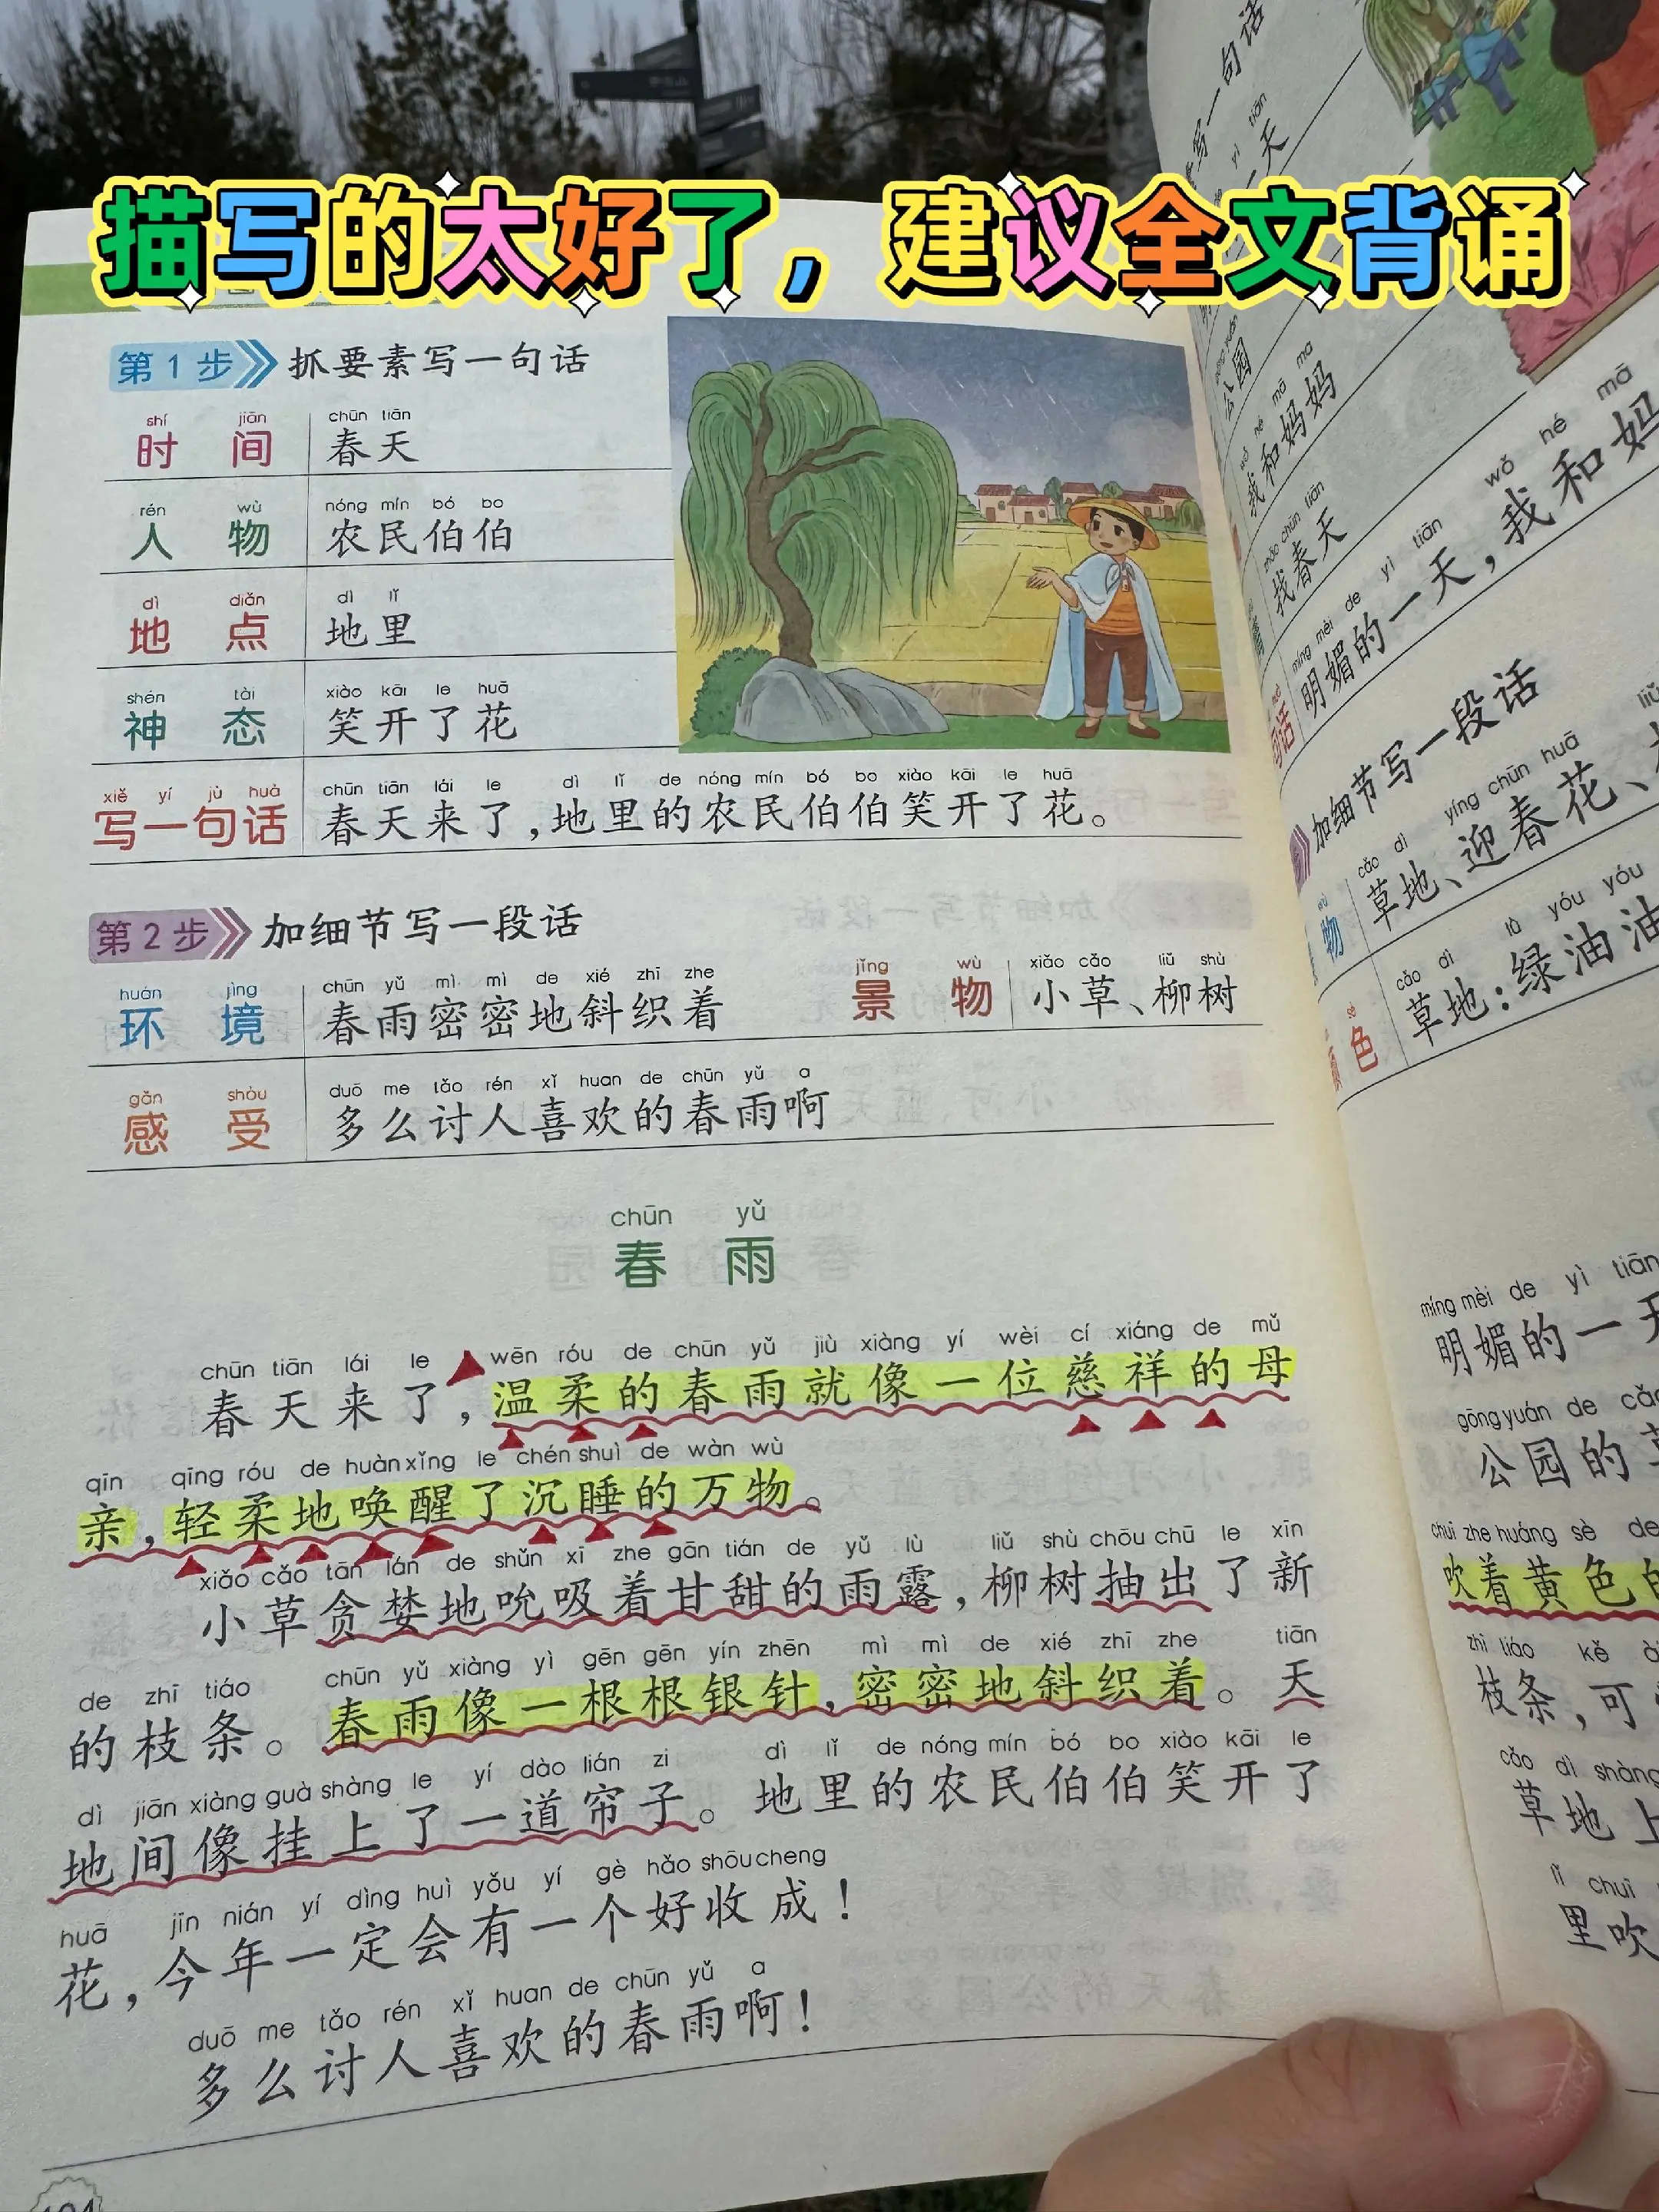 描写的太好了，建议全文背诵
第1步 抓要素写一句话
shí jiān chūn tiān
时间 春天
rén wù nóng mín bó bo
人物 农民伯伯
dì diǎn dì lǐ
地点 地里
shén tài xiào kāi le huā
神态 笑开了花
xiě yí jù huà chūn tiān lái le dì lǐ de nóng mín bó bo xiào kāi le huā
写一句话 春天来了，地里的农民伯伯笑开了花。
第2步 加细节写一段话
huán jìng chūn yǔ mì mì de xié zhī zhe jǐng wù xiǎo cǎo liǔ shù
环境 春雨密密地斜织着 景物 小草、柳树
gǎn shòu duō me tǎo rén xǐ huan de chūn yǔ a
感受 多么讨人喜欢的春雨啊
chūn yǔ
春雨
chūn tiān lái le wēn róu de chūn yǔ jiù xiàng yí wèi cí xiáng de mǔ
春天来了，温柔的春雨就像一位慈祥的母
qīn qīng róu de huàn xǐng le chén shuì de wàn wù
亲，轻柔地唤醒了沉睡的万物。
xiǎo cǎo tān lán de shǔn xī zhe gān tián de yǔ lù liǔ shù chōu chū le xīn
小草贪婪地吮吸着甘甜的雨露，柳树抽出了新
de zhī tiáo chūn yǔ xiàng yì gēn gēn yín zhēn mì mì de xié zhī zhe tiān
的枝条。春雨像一根根银针，密密地斜织着。天
dì jiān xiàng guà shàng le yí dào lián zi dì lǐ de nóng mín bó bo xiào kāi le
地间像挂上了一道帘子。地里的农民伯伯笑开了
huā jīn nián yí dìng huì yǒu yí gè hǎo shōu cheng
花，今年一定会有一个好收成！
duō me tǎo rén xǐ huan de chūn yǔ a
多么讨人喜欢的春雨啊！
写一句话
yì tiān
一天
公园
mā ma
我和妈妈
zhǎo chūn tiān
找春天
míng mèi de yì tiān wǒ hé mā
明媚的一天，我和妈
加细节写一段话
cǎo dì yíng chūn huā
物 草地、迎春花、
cǎo dì lǜ yóu yóu
色 草地：绿油油
míng mèi de yì tiān
明媚的一天
gōng yuán de cǎo
公园的草
chuī zhe huáng sè de
吹着黄色的
zhī tiáo kě
枝条，可
cǎo dì shàng
草地上
lǐ chuī
里吹